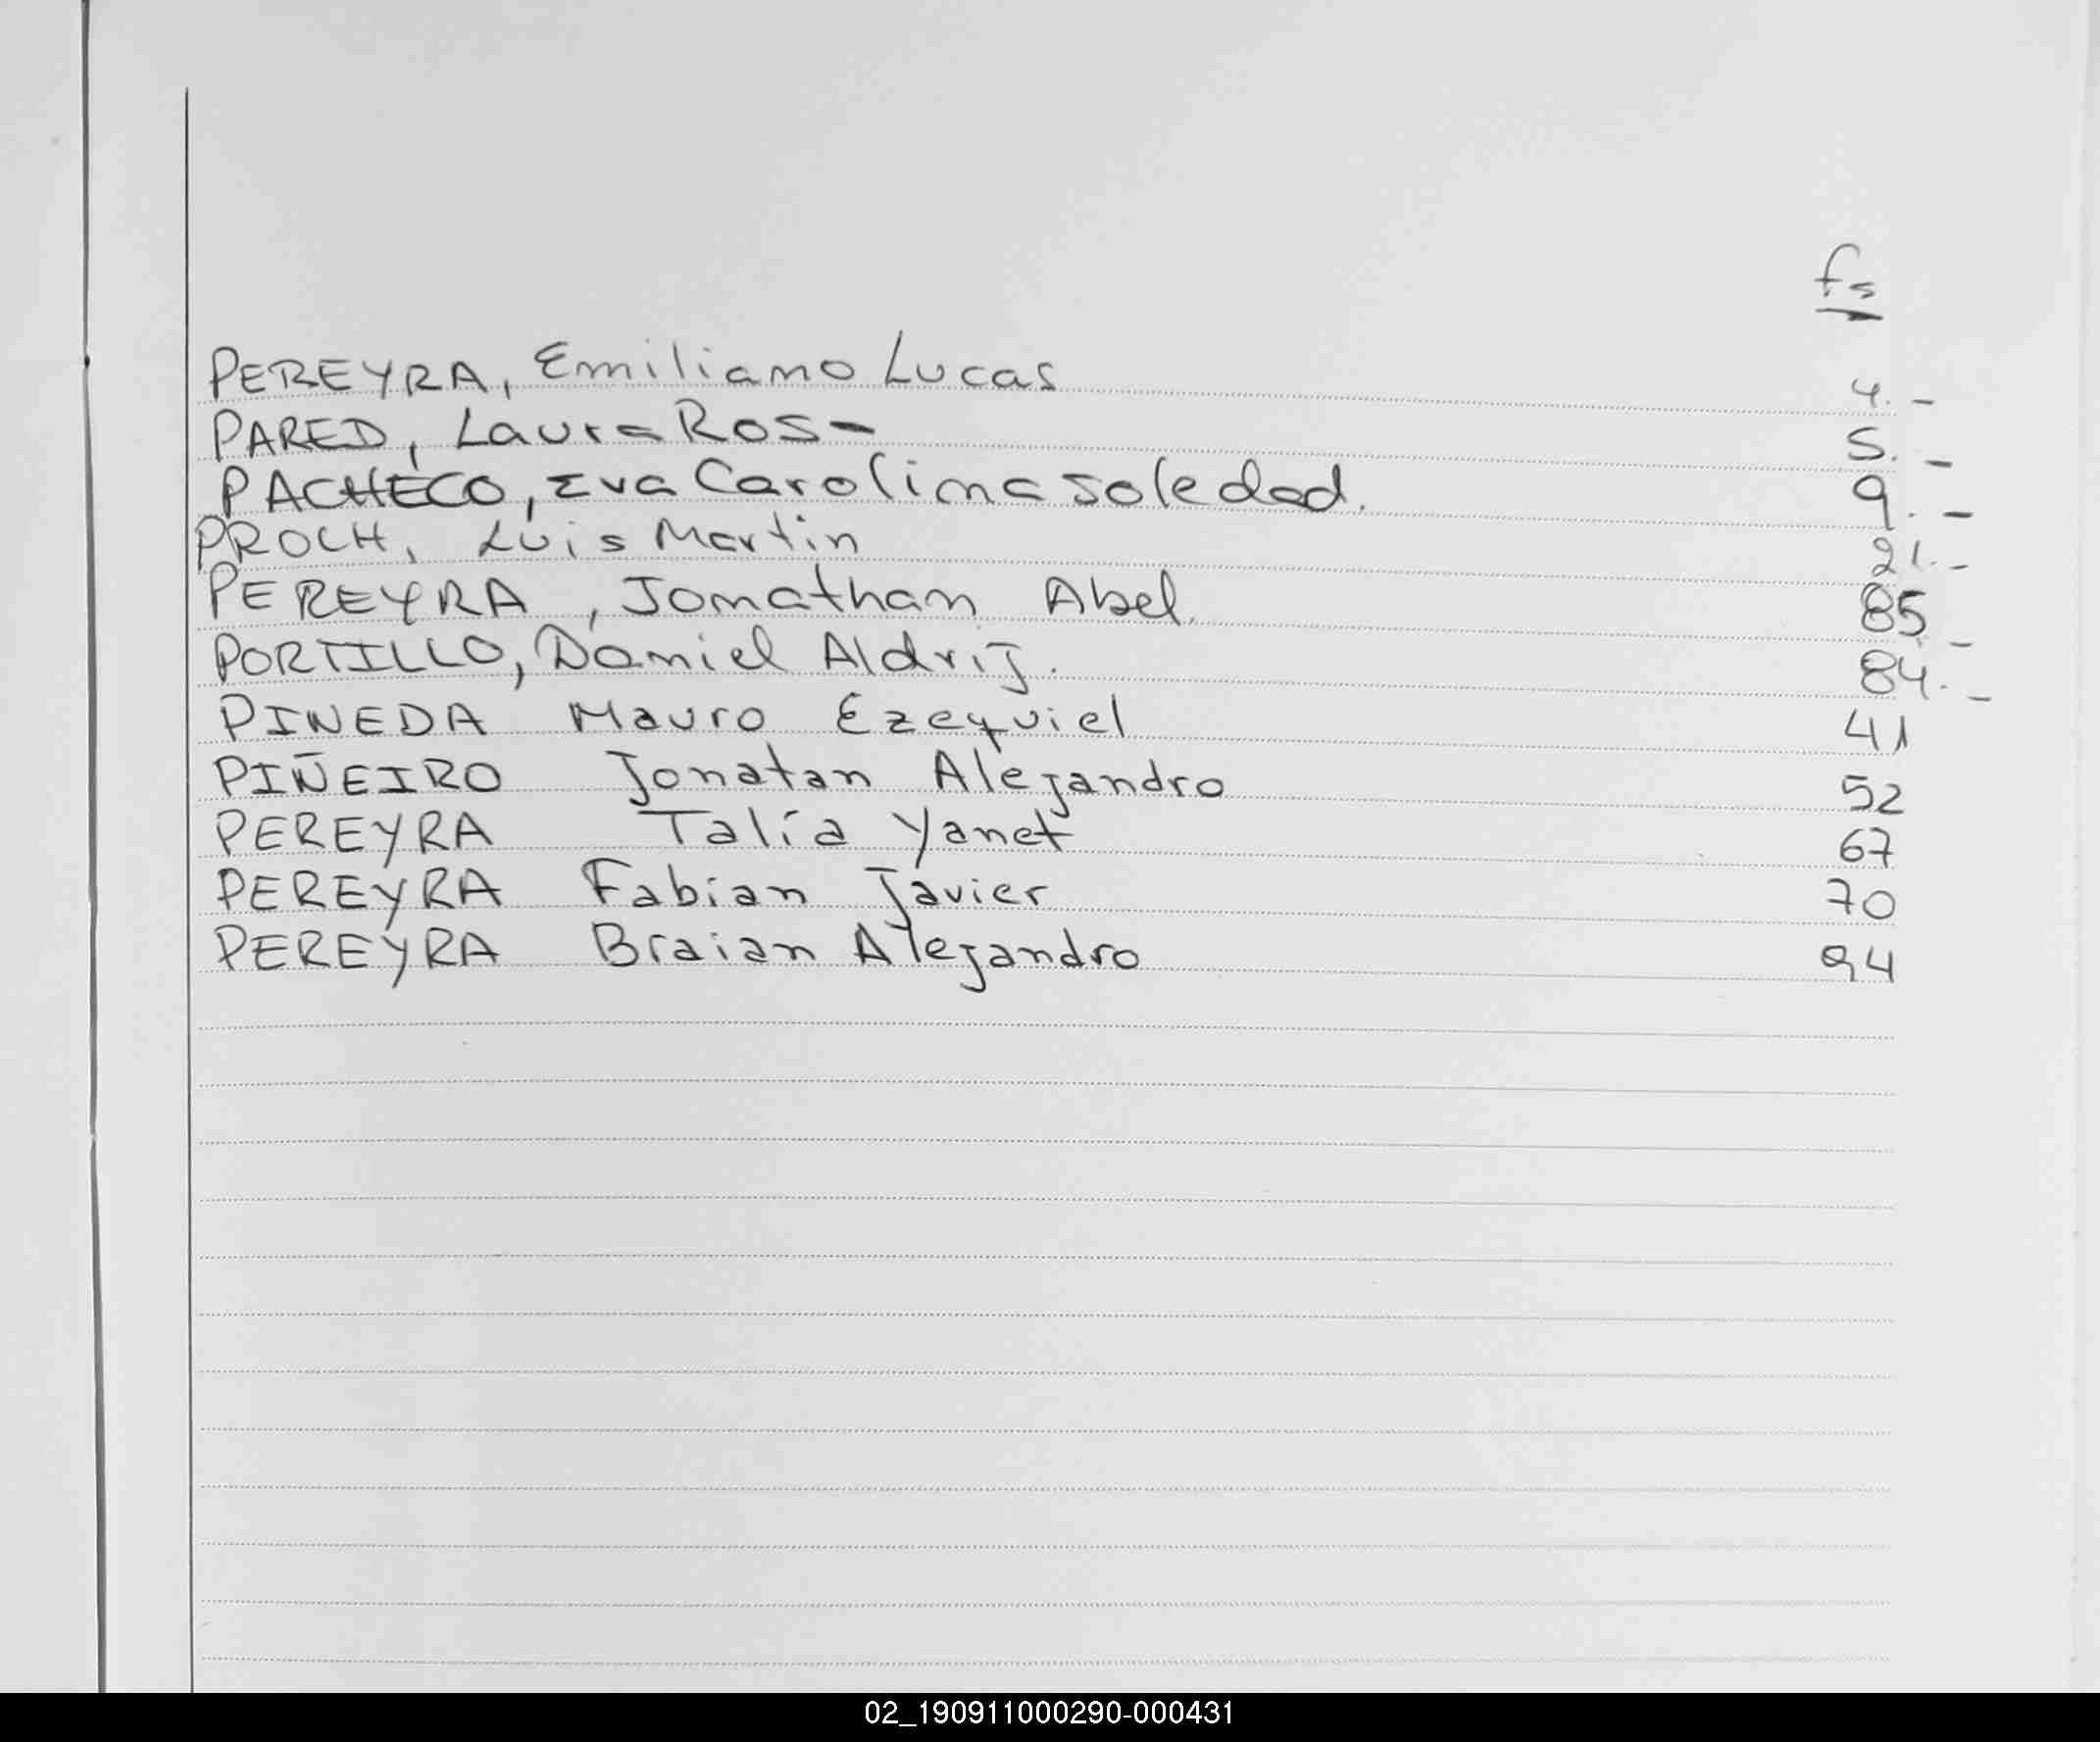 fs
PEREYRA, Emiliano Lucas 4.-
PARED, Laura Rosa 5.-
PACHECO, Eva Carolina Soledad. 9.-
PROCH, Luis Martin 21.-
PEREYRA, Jonathan Abel. 85.-
PORTILLO, Daniel Aldrij. 84.-
PINEDA Mauro Ezequiel 41
PIÑEIRO Jonatan Alejandro 52
PEREYRA Talía Yanet 67
PEREYRA Fabian Javier 70
PEREYRA Braian Alejandro 94
02_190911000290-000431